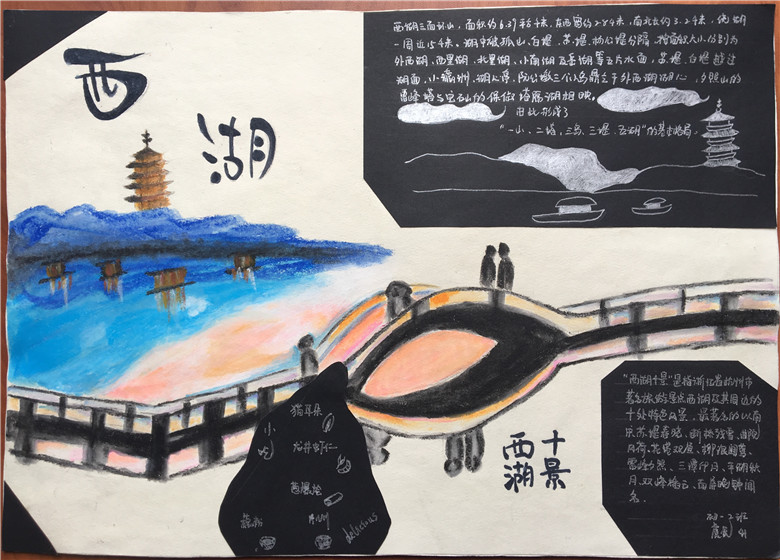 西湖
西湖三面环山，面积约6.39平方千米，东西宽约2.8千米，南北长约3.2千米，绕湖
一周近15千米。湖中被孤山、白堤、苏堤、杨公堤分隔，按面积大小分别为
外西湖、西里湖、北里湖、小南湖及岳湖等五片水面，苏堤、白堤越过
湖面，小瀛洲、湖心亭、阮公墩三个小岛鼎立于外西湖湖心，夕照山的
雷峰塔与宝石山的保俶塔隔湖相映，
由此形成了
“一山、二塔、三岛、三堤、五湖”的基本格局。
小吃
猫耳朵
龙井虾仁
葱包桧
藕粉
delicious
西湖
十景
“西湖十景”是指浙江省杭州市
著名旅游景点西湖及其周边的
十处特色风景，最著名的以南
宋苏堤春晓、断桥残雪、曲院
风荷、花港观鱼、柳浪闻莺、
雷峰夕照、三潭印月、平湖秋
月、双峰插云、南屏晚钟闻
名。